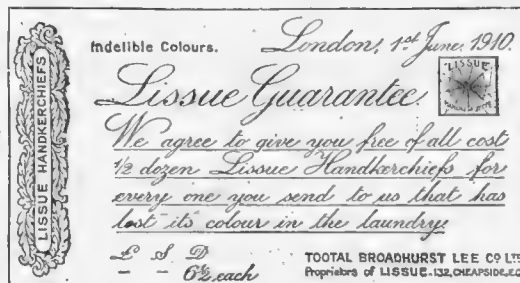 LISSUE HANDKERCHIEFS
Indelible Colours.
London, 1st June. 1910.
Lissue Guarantee.
LISSUE
We agree to give you free of all cost
½ dozen Lissue Handkerchiefs for
every one you send to us that has
lost its colour in the laundry.
£ S D
— — 6½ each
TOOTAL BROADHURST LEE CO LTD
Proprietors of LISSUE-132, CHEAPSIDE, E.C